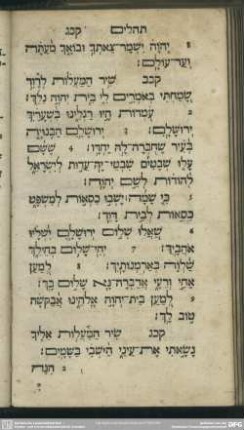 תהלים קכג
8 יְהֹוָה יִשְׁמָר־צֵאתְךָ וּבוֹאֶךָ מֵעַתָּה
וְעַד־עוֹלָם׃
קכב שִׁיר הַמַּעֲלוֹת לְדָוִד
שָׂמַחְתִּי בְּאֹמְרִים לִי בֵּית יְהוָה נֵלֵךְ׃
עֹמְדוֹת הָיוּ רַגְלֵינוּ בִּשְׁעָרַיִךְ
יְרוּשָׁלָםִ׃ 3 יְרוּשָׁלַםִ הַבְּנוּיָה
כְּעִיר שֶׁחֻבְּרָה־לָּהּ יַחְדָּו׃ 4 שֶׁשָּׁם
עָלוּ שְׁבָטִים שִׁבְטֵי־יָהּ עֵדוּת לְיִשְׂרָאֵל
לְהוֹדוֹת לְשֵׁם יְהוָה׃
כִּי שָׁמָּה יָשְׁבוּ כִסְאוֹת לְמִשְׁפָּט
כִּסְאוֹת לְבֵית דָּוִד׃
שַׁאֲלוּ שְׁלוֹם יְרוּשָׁלָםִ יִשְׁלָיוּ
אֹהֲבָיִךְ׃ 7 יְהִי־שָׁלוֹם בְּחֵילֵךְ
שַׁלְוָה בְּאַרְמְנוֹתָיִךְ׃ לְמַעַן
אַחַי וְרֵעָי אֲדַבְּרָה־נָּא שָׁלוֹם בָּךְ׃
לְמַעַן בֵּית־יְהוָה אֱלֹהֵינוּ אֲבַקְשָׁה
טוֹב לָךְ׃
קכג שִׁיר הַמַּעֲלוֹת אֵלֶיךָ
נָשָׂאתִי אֶת־עֵינַי הַיֹּשְׁבִי בַּשָּׁמָיִם׃
הִנֵּה